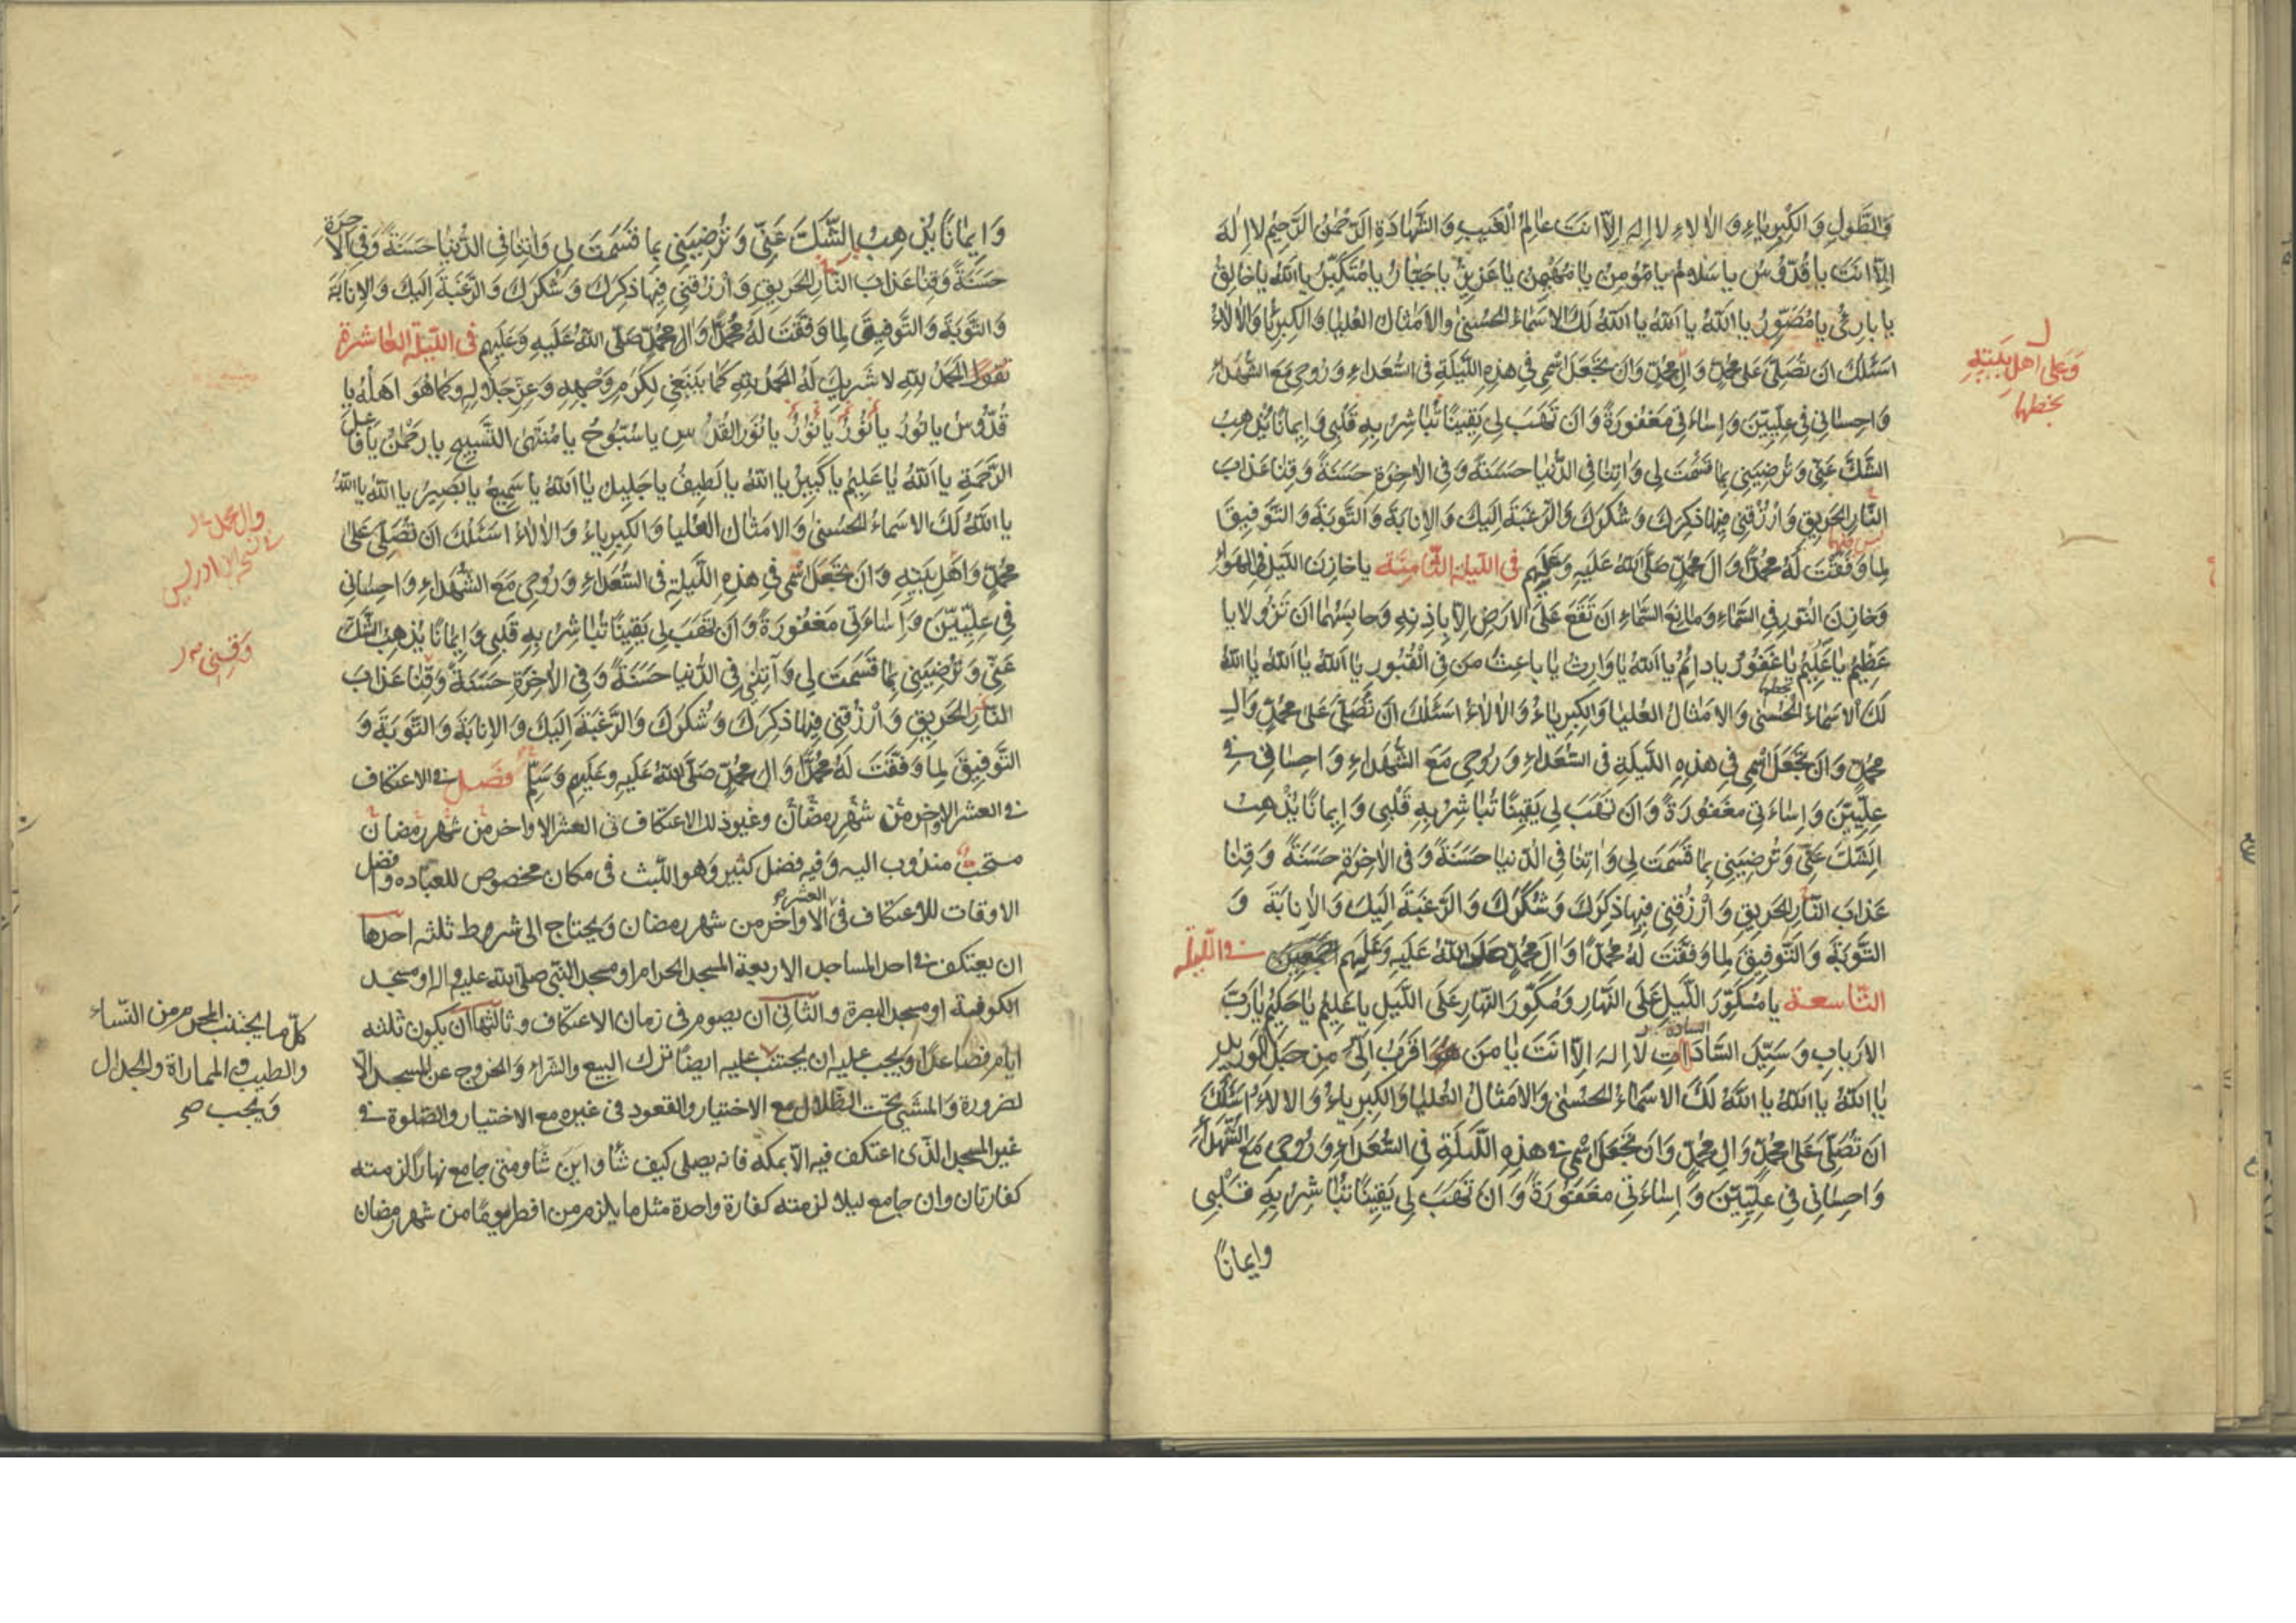 وَالطَّوْلِ وَالْكِبْرِيٰاءِ وَالْاٰلاٰءِ لاٰ اِلٰهَ اِلاّٰ اَنْتَ عٰالِمُ الْغَيْبِ وَالشَّهٰادَةِ الرَّحْمٰنُ الرَّحِيمُ لاٰ اِلٰهَ
اِلاّٰ اَنْتَ يا قُدُّوسُ يا سَلامُ يا مُؤمِنُ يا مُهَيْمِنُ يا عَزِيزُ يا جَبّارُ يا مُتَكَبِّرُ يا اَللهُ يا خالِقُ
يا بارِئُ يا مُصَوِّرُ يا اَللهُ يا اَللهُ يا اَللهُ لَكَ الاَسْماءُ الْحُسْنىٰ وَالاَمْثالُ الْعُلْيا وَالْكِبْرِياءُ وَالاٰلاٰءُ
اَسْئَلُكَ اَنْ تُصَلِّىَ عَلىٰ مُحَمَّدٍ وَآلِ مُحَمَّدٍ وَاَنْ تَجْعَلَ اسْمِى فِى هٰذِهِ اللَّيْلَةِ فِى السُّعَداءِ وَرُوحِى مَعَ الشُّهَداءِ
وَعَلى اَهلِ بَيتِهِ
بخطهما
وَاِحْسانِى فِى عِلِّيِّينَ وَاِساءَتِى مَغْفُورَةً وَاَنْ تَهَبَ لِى يَقِينًا تُباشِرُ بِهِ قَلْبِى وَاِيمانًا يُذْهِبُ
الشَّكَّ عَنِّى وَتُرْضِيَنِى بِما قَسَمْتَ لِى وَاٰتِنا فِى الدُّنْيا حَسَنَةً وَفِى الاٰخِرَةِ حَسَنَةً وَقِنا عَذابَ
النّارِ الْحَرِيقِ وَارْزُقْنِى فِيها ذِكْرَكَ وَشُكْرَكَ وَالرَّغْبَةَ اِلَيْكَ وَالاِنابَةَ وَالتَّوْبَةَ وَالتَّوْفِيقَ
لِما وَفَّقْتَ لَهُ مُحَمَّدًا وَآلَ مُحَمَّدٍ صَلَّى اللهُ عَلَيْهِ وَعَلَيْهِم فى الليلة الثّامِنَة يا خازِنَ اللَّيْلِ فِى الْهَواءِ
وَخازِنَ النُّورِ فِى السَّماءِ وَمانِعَ السَّماءِ اَنْ تَقَعَ عَلَى الاَرْضِ اِلاّ بِاِذْنِهِ وَحابِسَهُما اَنْ تَزُولا يا
عَظِيمُ يا عَلِيمُ يا غَفُورُ يا دائِمُ يا اَللهُ يا وارِثُ يا باعِثَ مَنْ فِى الْقُبُورِ يا اَللهُ يا اَللهُ يا اَللهُ
لَكَ الاَسْماءُ الْحُسْنىٰ وَالاَمْثالُ الْعُلْيا وَالْكِبْرِياءُ وَالاٰلاٰءُ اَسْئَلُكَ اَنْ تُصَلِّىَ عَلىٰ مُحَمَّدٍ وَآلِ
مُحَمَّدٍ وَاَنْ تَجْعَلَ اسْمِى فِى هٰذِهِ اللَّيْلَةِ فِى السُّعَداءِ وَرُوحِى مَعَ الشُّهَداءِ وَاِحْسانِى فِى
عِلِّيِّينَ وَاِساءَتِى مَغْفُورَةً وَاَنْ تَهَبَ لِى يَقِينًا تُباشِرُ بِهِ قَلْبِى وَاِيمانًا يُذْهِبُ
الشَّكَّ عَنِّى وَتُرْضِيَنِى بِما قَسَمْتَ لِى وَاٰتِنا فِى الدُّنْيا حَسَنَةً وَفِى الاٰخِرَةِ حَسَنَةً وَقِنا
عَذابَ النّارِ الْحَرِيقِ وَارْزُقْنِى فِيها ذِكْرَكَ وَشُكْرَكَ وَالرَّغْبَةَ اِلَيْكَ وَالاِنابَةَ وَ
التَّوْبَةَ وَالتَّوْفِيقَ لِما وَفَّقْتَ لَهُ مُحَمَّدًا وَآلَ مُحَمَّدٍ صَلَّى اللهُ عَلَيْهِ وَعَلَيْهِم فى الليلة
التّاسعة يا مُكَوِّرَ اللَّيْلِ عَلَى النَّهارِ وَمُكَوِّرَ النَّهارِ عَلَى اللَّيْلِ يا عَلِيمُ يا حَكِيمُ يا رَبَّ
الاَرْبابِ وَسَيِّدَ السّاداتِ لا اِلٰهَ اِلاّ اَنْتَ يا مَنْ هُوَ اَقْرَبُ اِلَىَّ مِنْ حَبْلِ الْوَرِيدِ
يا اَللهُ يا اَللهُ يا اَللهُ لَكَ الاَسْماءُ الْحُسْنىٰ وَالاَمْثالُ الْعُلْيا وَالْكِبْرِياءُ وَالاٰلاٰءُ اَسْئَلُكَ
اَنْ تُصَلِّىَ عَلىٰ مُحَمَّدٍ وَآلِ مُحَمَّدٍ وَاَنْ تَجْعَلَ اسْمِى فِى هٰذِهِ اللَّيْلَةِ فِى السُّعَداءِ وَرُوحِى مَعَ الشُّهَداءِ
وَاِحْسانِى فِى عِلِّيِّينَ وَاِساءَتِى مَغْفُورَةً وَاَنْ تَهَبَ لِى يَقِينًا تُباشِرُ بِهِ قَلْبِى
وايمانًا
وَاِيمانًا يُذْهِبُ الشَّكَّ عَنِّى وَتُرْضِيَنِى بِما قَسَمْتَ لِى وَاٰتِنا فِى الدُّنْيا حَسَنَةً وَفِى الاٰخِرَةِ
حَسَنَةً وَقِنا عَذابَ النّارِ الْحَرِيقِ وَارْزُقْنِى فِيها ذِكْرَكَ وَشُكْرَكَ وَالرَّغْبَةَ اِلَيْكَ وَالاِنابَةَ
وَالتَّوْبَةَ وَالتَّوْفِيقَ لِما وَفَّقْتَ لَهُ مُحَمَّدًا وَآلَ مُحَمَّدٍ صَلَّى اللهُ عَلَيْهِ وَعَلَيْهِم فى الليلة العاشرة
تقول الْحَمْدُ لِلّهِ لا شَرِيكَ لَهُ الْحَمْدُ لِلّهِ كَما يَنْبَغِى لِكَرَمِ وَجْهِهِ وَعِزِّ جَلالِهِ وَكَما هُوَ اَهْلُهُ يا
قُدُّوسُ يا نُورُ يا نُورُ يا نُورُ يا نُورَ الْقُدْسِ يا سُبُّوحُ يا مُنْتَهَى التَّسْبِيحِ يا رَحْمٰنُ يا فاعِلَ
الرَّحْمَةِ يا اَللهُ يا عَلِيمُ يا كَبِيرُ يا اَللهُ يا لَطِيفُ يا جَلِيلُ يا اَللهُ يا سَمِيعُ يا بَصِيرُ يا اَللهُ يا اَللهُ
يا اَللهُ لَكَ الاَسْماءُ الْحُسْنىٰ وَالاَمْثالُ الْعُلْيا وَالْكِبْرِياءُ وَالاٰلاٰءُ اَسْئَلُكَ اَنْ تُصَلِّىَ عَلىٰ
وال محمد
ادريس
مُحَمَّدٍ وَاَهْلِ بَيْتِهِ وَاَنْ تَجْعَلَ اسْمِى فِى هٰذِهِ اللَّيْلَةِ فِى السُّعَداءِ وَرُوحِى مَعَ الشُّهَداءِ وَاِحْسانِى
فِى عِلِّيِّينَ وَاِساءَتِى مَغْفُورَةً وَاَنْ تَهَبَ لِى يَقِينًا تُباشِرُ بِهِ قَلْبِى وَاِيمانًا يُذْهِبُ الشَّكَّ
عَنِّى وَتُرْضِيَنِى بِما قَسَمْتَ لِى وَآتِنِى فِى الدُّنْيا حَسَنَةً وَفِى الاٰخِرَةِ حَسَنَةً وَقِنا عَذابَ
وَقِنى
النّارِ الْحَرِيقِ وَارْزُقْنِى فِيها ذِكْرَكَ وَشُكْرَكَ وَالرَّغْبَةَ اِلَيْكَ وَالاِنابَةَ وَالتَّوْبَةَ وَ
التَّوْفِيقَ لِما وَفَّقْتَ لَهُ مُحَمَّدًا وَآلَ مُحَمَّدٍ صَلَّى اللهُ عَلَيْهِ وَعَلَيْهِم وَسَلَّمَ فصل فى الاعتكاف
فى العشر الاواخر من شهر رمضان وغير ذلك الاعتكاف فى العشر الاواخر من شهر رمضان
مستحبّ مندوب اليه وفيه فضل كثير وهو اللّبث فى مكان مخصوص للعبادة وافضل
الاوقات للاعتكاف فى العشر الاواخر من شهر رمضان ويحتاج الى شروط ثلثه احدها
ان يعتكف فى احد المساجد الاربعة المسجد الحرام او مسجد النّبى صلى الله عليه واله او مسجد
الكوفة او مسجد البصرة والثانى ان يصوم فى زمان الاعتكاف وثالثها ان يكون ثلثه
ايام فصاعدًا ويجب عليه ان يجتنب عليه ايضًا ترك البيع والشراء والخروج عن المسجد الّا
كلّ ما يجتنب المحرم من النّساء
والطيب والمماراة والجدال
ويجب صح
لضرورة والمشى تحت الظلال مع الاختيار والقعود فى غيره مع الاختيار والصّلوة فى
غير المسجد الّذى اعتكف فيه الّا بمكة فانه يصلى كيف شأ واين شأ ومتى جامع نهارًا لزمته
كفارتان وان جامع ليلا لزمته كفارة واحدة مثل ما يلزم من افطر يومًا من شهر رمضان